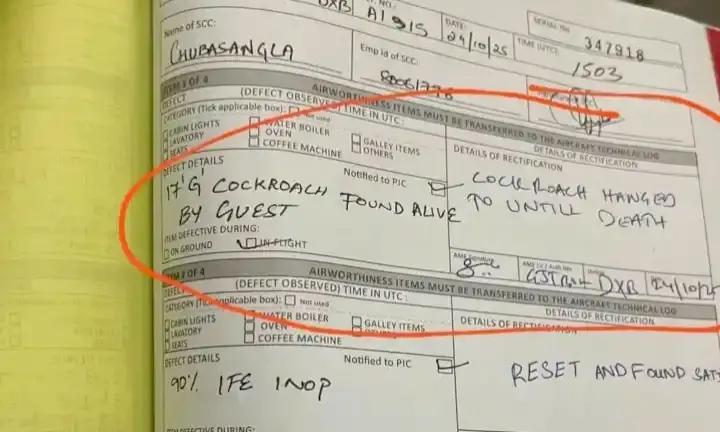 DXB
NO.:
AI 915
DATE:
24/10/25
SERIAL No
347918
Name of SCC:
CHUBASANGLA
Emp Id of SCC:
TIME (UTC):
1503
ITEM 1 OF 4
AIRWORTHINESS ITEMS MUST BE TRANSFERRED TO THE AIRCRAFT TECHNICAL LOG
DEFECT
(DEFECT OBSERVED) TIME IN UTC:
CATEGORY (Tick applicable box):
Not used
CABIN LIGHTS
WATER BOILER
GALLEY ITEMS
LAVATORY
OVEN
OTHERS
SEATS
COFFEE MACHINE
DETAILS OF RECTIFICATION
DETAILS OF RECTIFICATION
DEFECT DETAILS
Notified to PIC
17'G' COCKROACH FOUND ALIVE
BY GUEST
COCKROACH HANGED
TO UNTILL DEATH
ITEM DEFECTIVE DURING:
ON GROUND
IN-FLIGHT
DXB
24/10/25
ITEM 2 OF 4
AIRWORTHINESS ITEMS MUST BE TRANSFERRED TO THE AIRCRAFT TECHNICAL LOG
(DEFECT OBSERVED) TIME IN UTC:
CATEGORY (Tick applicable box):
Not used
CABIN LIGHTS
WATER BOILER
GALLEY ITEMS
LAVATORY
OVEN
SEATS
COFFEE MACHINE
DETAILS OF RECTIFICATION
DETAILS OF RECTIFICATION
DEFECT DETAILS
Notified to PIC
90% IFE INOP
RESET AND FOUND SAT
ITEM DEFECTIVE DURING: